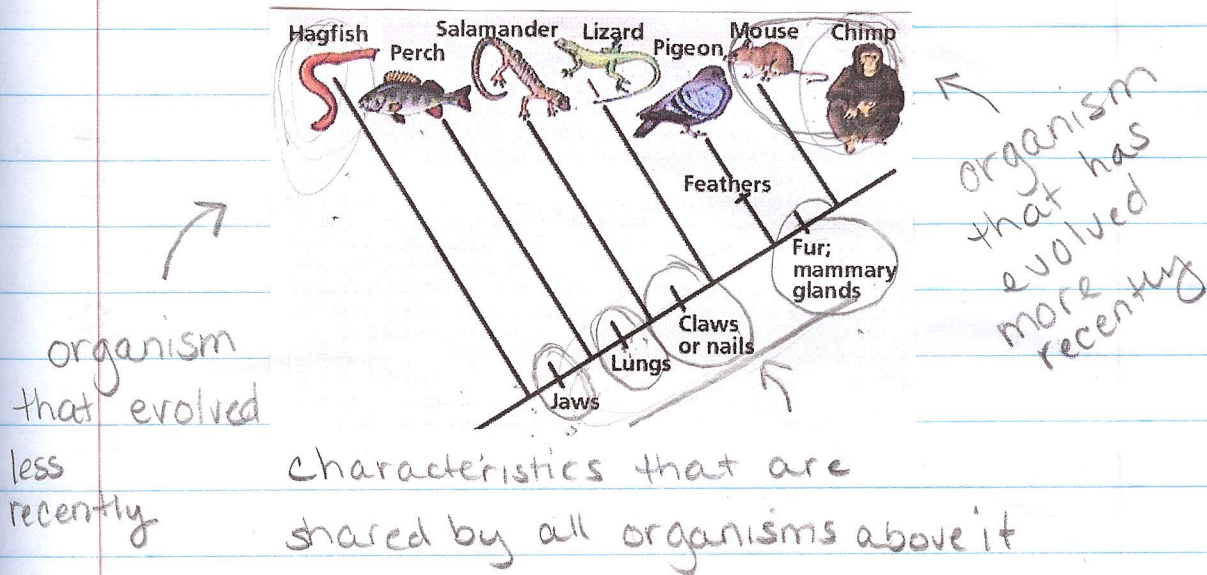 Hagfish
Perch
Salamander
Lizard
Pigeon
Mouse
Chimp
Feathers
Fur;
mammary
glands
Claws
or nails
Lungs
Jaws
organism
that has
evolved
more
recently
organism
that evolved
less
recently
characteristics that are
shared by all organisms above it